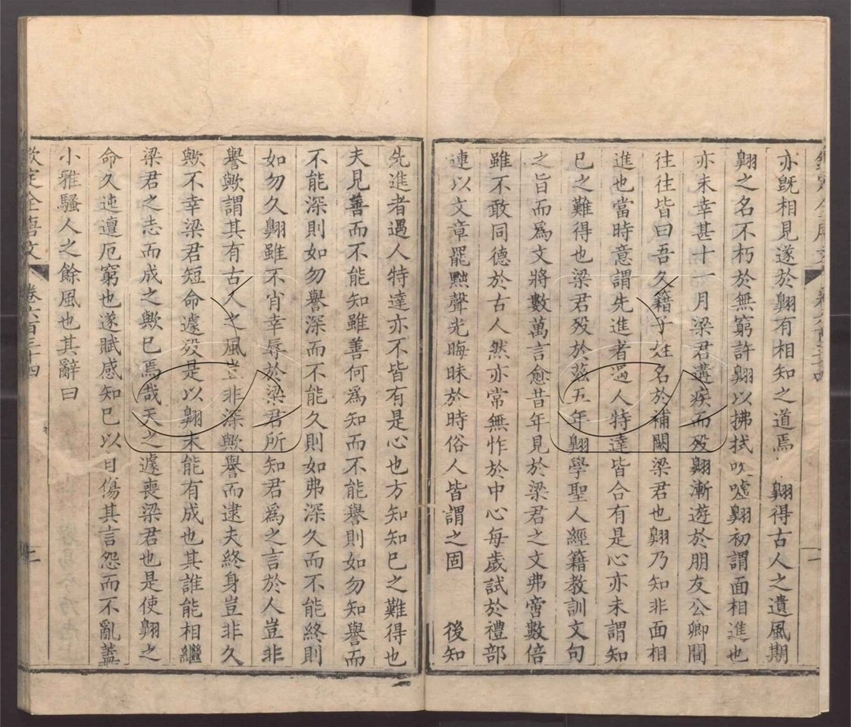 亦既相見遂於翱有相知之道焉 翱得古人之遺風期
翱之名不朽於無窮許翱以拂拭吹噓翱初謂面相進也
亦未幸甚十一月梁君遘疾而歿翱漸遊於朋友公卿間
往往皆曰吾久籍子姓名於補闕梁君也翱乃知非面相
進也當時意謂先進者遇人特達皆合有是心亦未謂知
已之難得也梁君歿於茲五年翱學聖人經籍教訓文句
之旨而爲文將數萬言愈昔年見於梁君之文弗啻數倍
雖不敢同德於古人然亦常無怍於中心每歲試於禮部
連以文章罷黜聲光晦昧於時俗人皆謂之固 後知
先進者遇人特達亦不皆有是心也方知知已之難得也
夫見善而不能知雖善何爲知而不能譽則如勿知譽而
不能深則如勿譽深而不能久則如弗深久而不能終則
如勿久翱雖不肖幸辱於梁君所知君爲之言於人豈非
譽歟謂其有古人之風豈非深歟譽而逮夫終身豈非久
歟不幸梁君短命遽歿是以翱未能有成也其誰能相繼
梁君之志而成之歟已焉哉天之遽喪梁君也是使翱之
命久迍邅厄窮也遂賦感知已以自傷其言怨而不亂蓋
小雅騷人之餘風也其辭曰
欽定全唐文 卷六百三十四 二